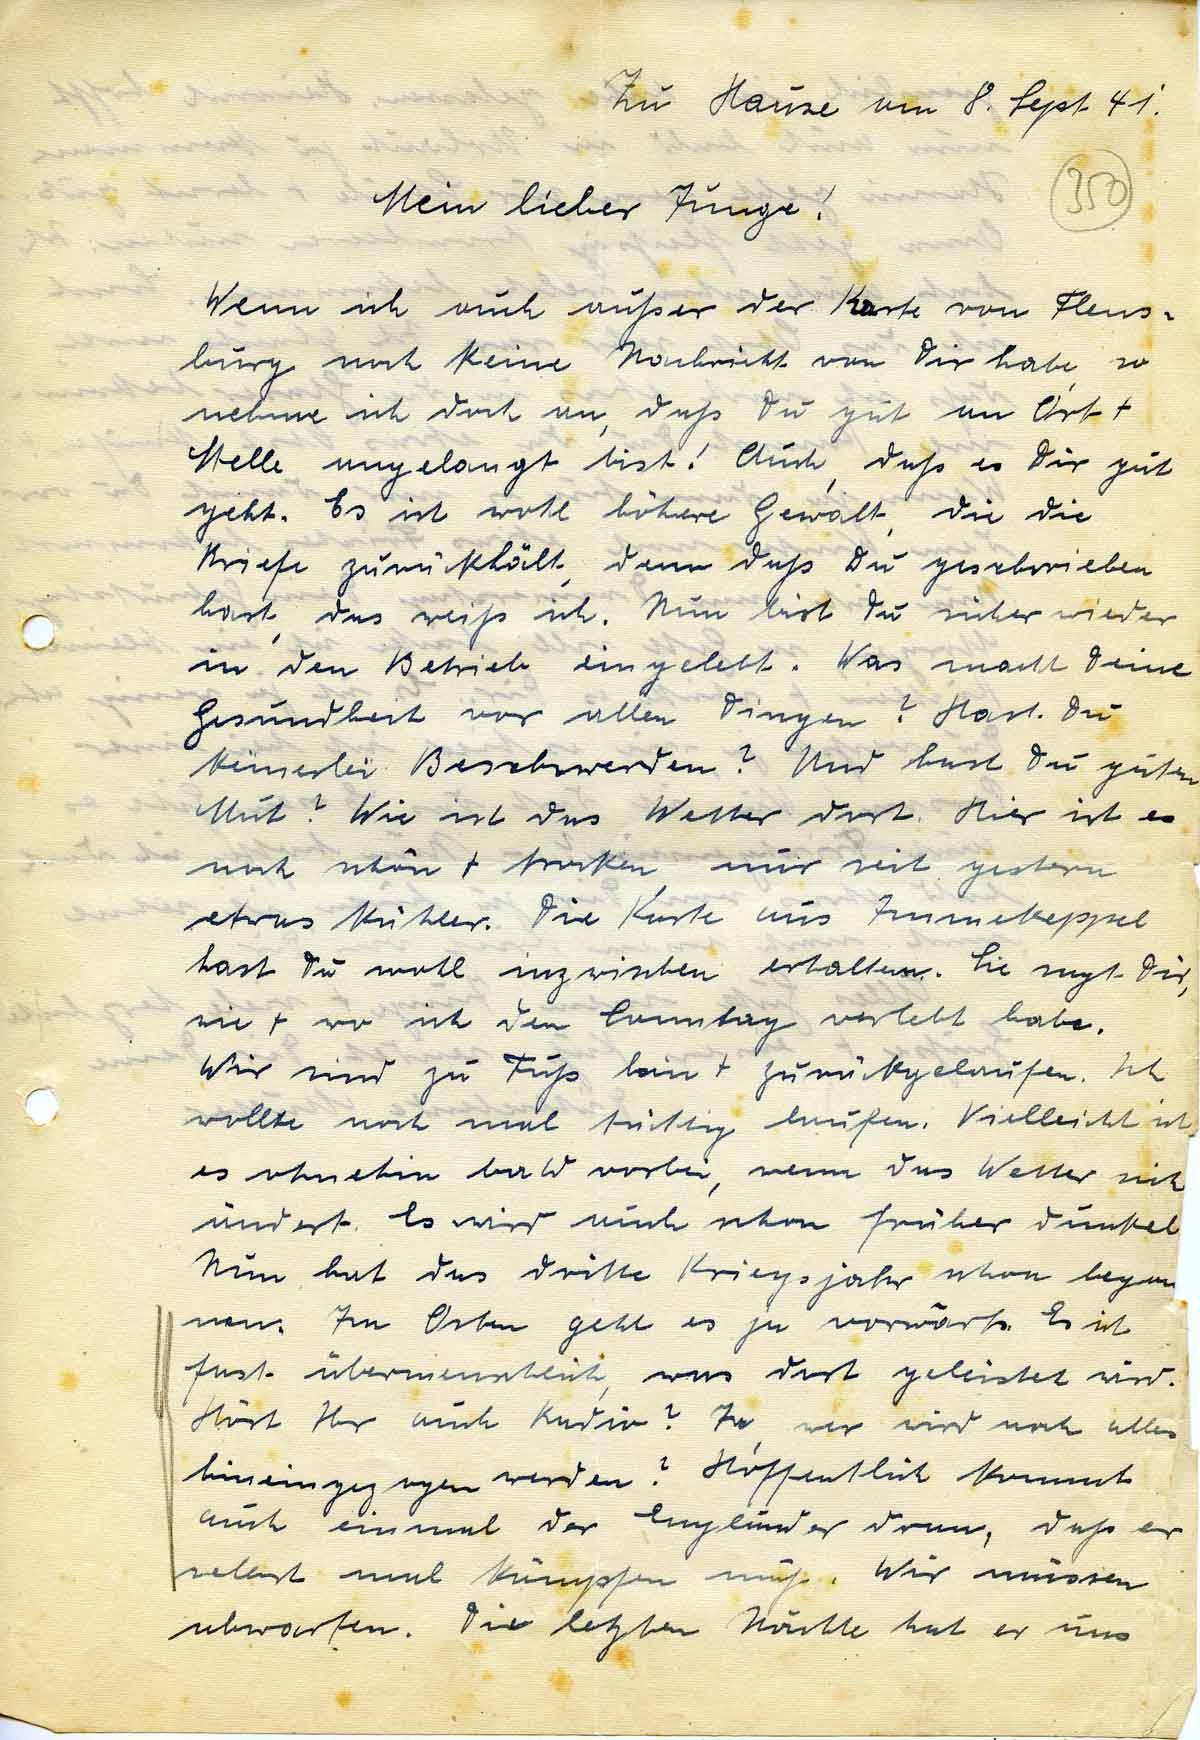 Zu Hause am 8. Sept. 41.
350
Mein lieber Junge!
Wenn ich auch außer der Karte von Flens-
burg noch keine Nachricht von Dir habe, so
nehme ich doch an, daß Du gut an Ort +
Stelle angelangt bist! Auch, daß es Dir gut
geht. Es ist wohl höhere Gewalt, die die
Briefe zurückhält, denn daß Du geschrieben
hast, das weiß ich. Nun bist Du sicher wieder
in den Betrieb eingelebt. Was macht Deine
Gesundheit vor allen Dingen? Hast Du
keinerlei Beschwerden? Und hast Du guten
Mut? Wie ist das Wetter dort. Hier ist es
noch schön + trocken, nur seit gestern
etwas kühler. Die Karte aus Immekeppel
hast Du wohl inzwischen erhalten. Sie sagt Dir,
wie + wo ich den Sonntag verlebt habe.
Wir sind zu Fuß hin + zurückgelaufen. Ich
wollte noch mal tüchtig laufen. Vielleicht ist
es ohnehin bald vorbei, wenn das Wetter sich
ändert. Es wird auch schon früher dunkel
Nun hat das dritte Kriegsjahr schon begon
nen. Im Osten geht es ja vorwärts. Es ist
fast übermenschlich, was dort geleistet wird.
Hört Ihr auch Radio? Ja, wer wird noch alles
hineingezogen werden? Hoffentlich kommt
auch einmal der Engländer dran, daß er
selbst mal kämpfen muß. Wir müssen
abwarten. Die letzten Nächte hat er uns